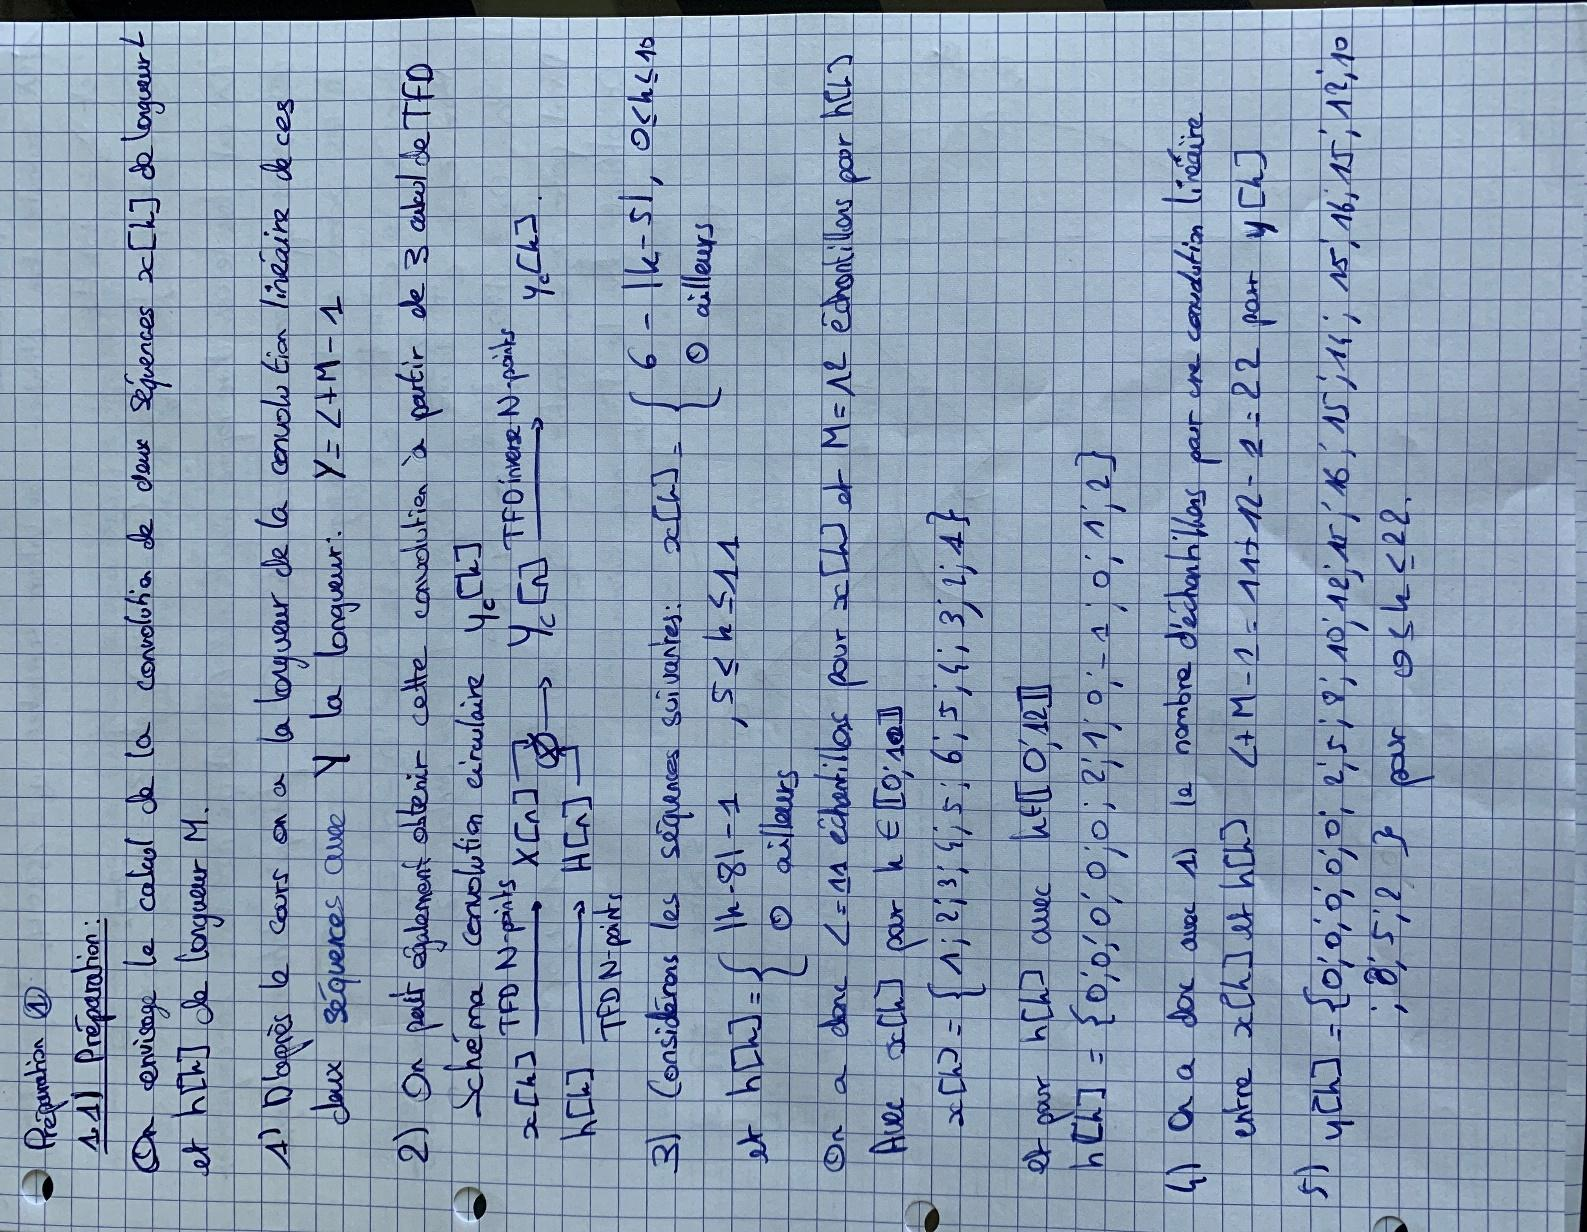 Préparation ①
1.1) Préparation:
On envisage le calcul de la convolution de deux séquences x[k] de longueur L
et h[k] de longueur M.
1) D'après le cours on a la longueur de la convolution linéaire de ces
deux séquences avec Y la longueur: Y = L+M-1
2) On peut également obtenir cette convolution à partir de 3 calcul de TFD
Schéma convolution circulaire yc[k]
x[k] TFD N-points X[n] ⊗ → Yc[n] TFD inverse N-points yc[k].
h[k] TFD N-points H[n]
3) Considérons les séquences suivantes: x[k] = { 6 - |k-5|, 0≤k≤10
0 ailleurs
et h[k] = { |k-8|-1 , 5≤k≤11
0 ailleurs
On a donc L=11 échantillons pour x[k] et M=12 échantillons pour h[k]
Avec x[k] pour k ∈ [[0;10]]
x[k] = {1; 2; 3; 4; 5; 6; 5; 4; 3; 2; 1}
et pour h[k] avec k∈[[0;12]]
h[k] = {0; 0; 0; 0; 0; 0; 2; 1; 0; -1; 0; 1; 2}
4) On a donc avec 1) le nombre d'échantillons pour une convolution linéaire
entre x[k] et h[k] L+M-1 = 11+12-1 = 22 pour y[k]
5) y[k] = {0; 0; 0; 0; 0; 0; 2; 5; 8; 10; 12; 15; 16; 15; 14; 15; 16; 15; 12; 10
; 8; 5; 2 } pour 0≤k≤22.